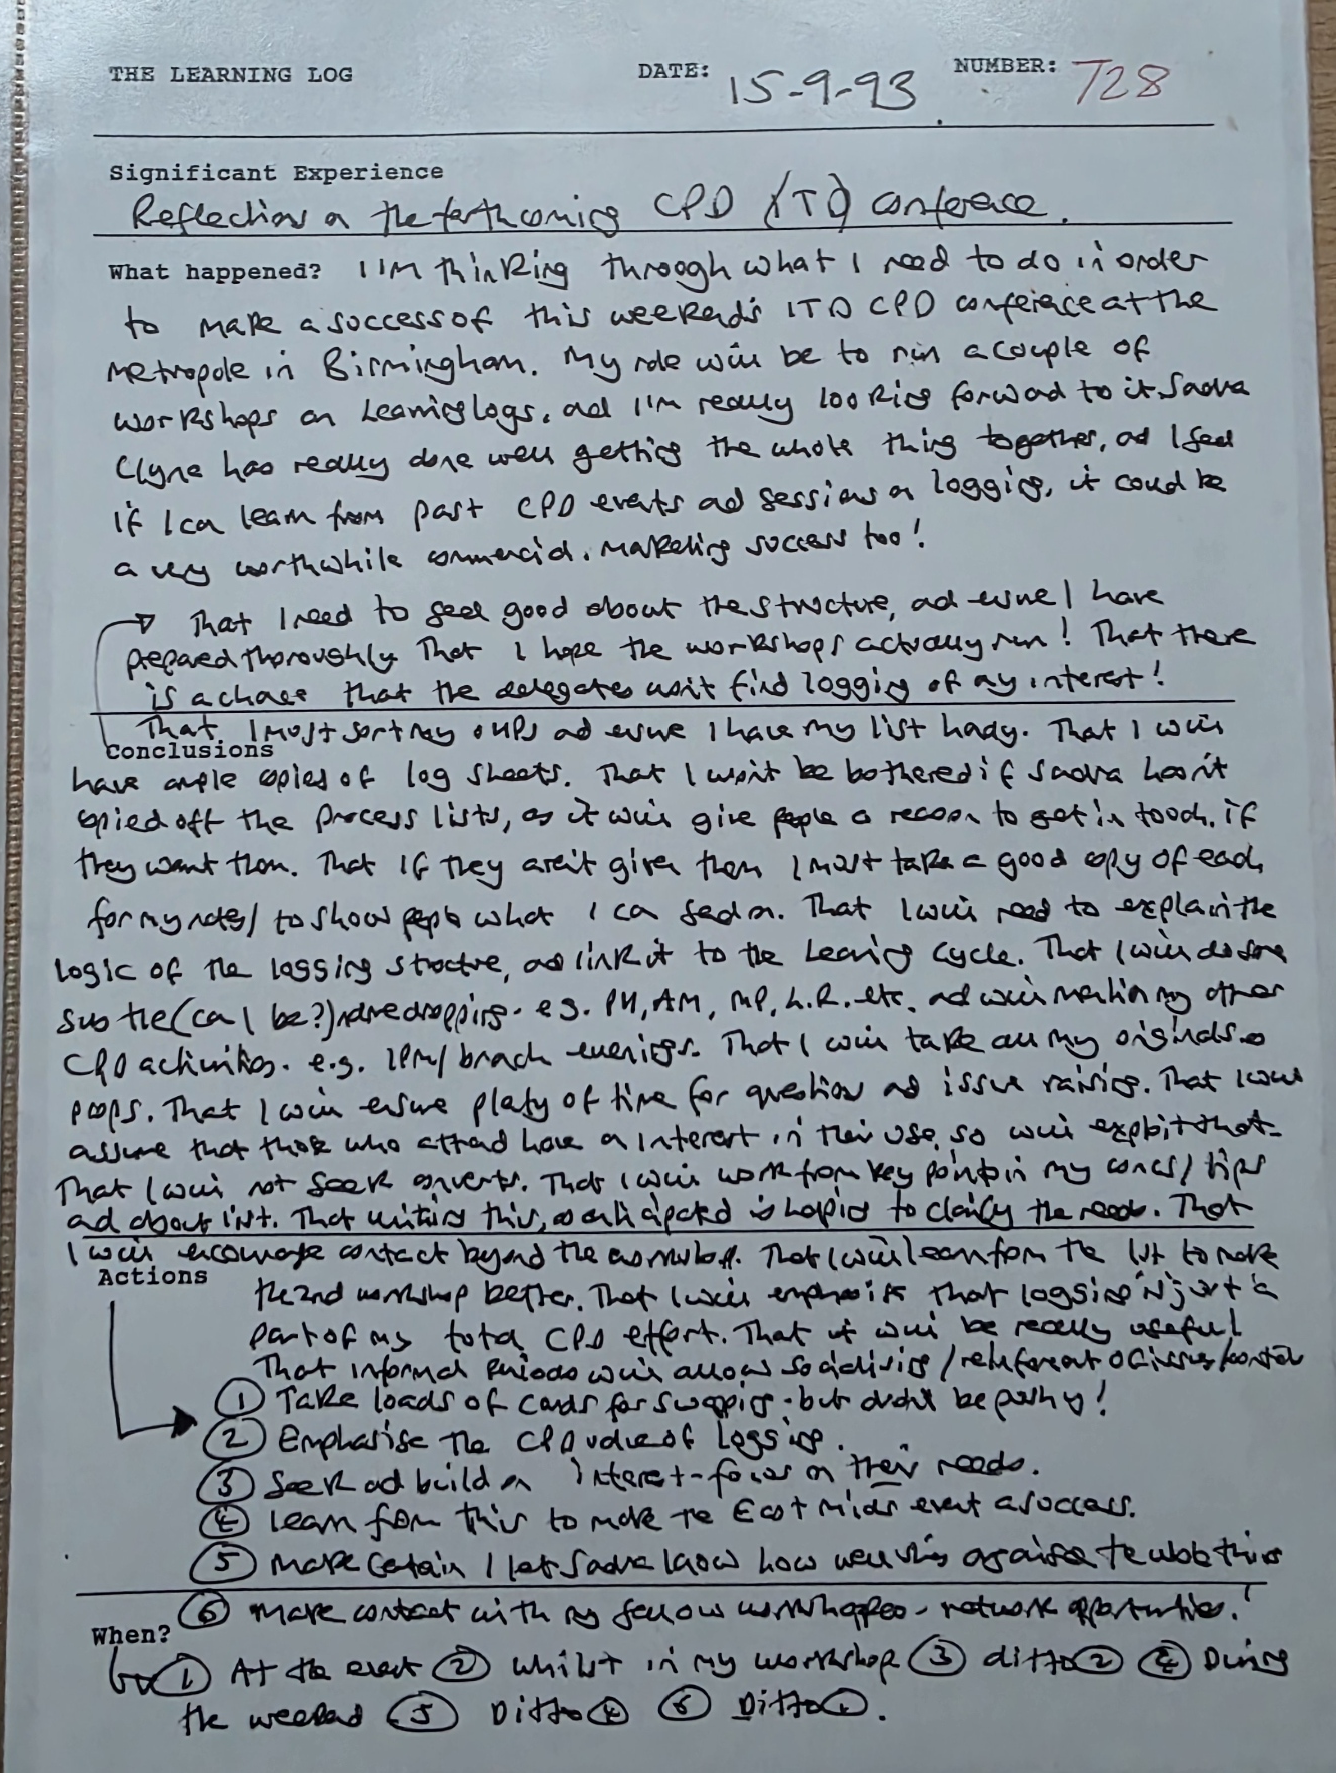 THE LEARNING LOG DATE: 15-9-93 NUMBER: 728
Significant Experience
Reflections on the forthcoming CPD (ITD) conference.
What happened? I'm thinking through what I need to do in order
to make a success of this weekend's ITD CPD conference at the
Metropole in Birmingham. My role will be to run a couple of
workshops on Learning logs, and I'm really looking forward to it. Sandra
Clyne has really done well getting the whole thing together, and I feel
if I can learn from past CPD events and sessions on logging, it could be
a very worthwhile commercial. Marketing success too!
That I need to feel good about the structure, and ensure I have
prepared thoroughly. That I hope the workshops actually run! That there
is a chance that the delegates won't find logging of any interest!
That I must sort my OHPs and ensure I have my list handy. That I will
Conclusions
have ample copies of log sheets. That I won't be bothered if Sandra hasn't
copied off the process lists, as it will give people a reason to get in touch, if
they want them. That if they aren't given them I must take a good copy of each
for my notes/ to show people what I can send on. That I will need to explain the
logic of the logging structure, and link it to the Learning Cycle. That I will do some
subtle (can I be?) name dropping. e.g. PH, AM, MP, L.R. etc. and will mention my other
CPD activities. e.g. IPM/ branch evenings. That I will take all my originals as
props. That I will ensure plenty of time for question and issue raising. That I will
assume that those who attend have an interest in their use, so will exploit that.
That I will not seek converts. That I will work from key points in my concs/ tips
and about list. That writing this, as anticipated is helping to clarify the needs. That
I will encourage contact beyond the workshop. That I will learn from the 1st to make
Actions
the 2nd workshop better. That I will emphasise that logging is just a
part of my total CPD effort. That it will be really useful
That informal periods will allow socialising / reinforcement of issues/contact
① Take loads of cards for swapping - but don't be pushy!
② Emphasise the CPD value of logging.
③ Seek and build on interest - focus on their needs.
④ Learn from this to make the East Mids event a success.
⑤ Make certain I let Sandra know how well she's organised the whole thing
⑥ Make contact with my fellow workshoppers - network opportunities!
When?
① At the event ② Whilst in my workshop ③ ditto ② ④ During
the weekend ⑤ Ditto ④ ⑥ Ditto